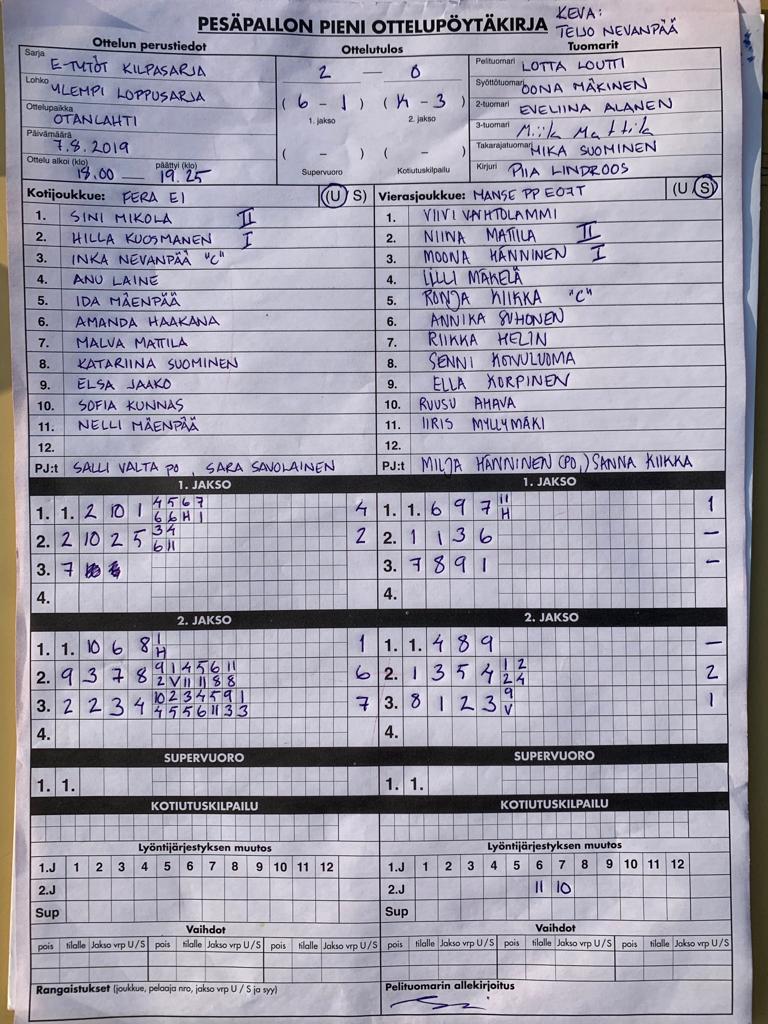 PESÄPALLON PIENI OTTELUPÖYTÄKIRJA
KEVA:
TEIJO NEVANPÄÄ
Ottelun perustiedot
Sarja
E-TYTÖT KILPASARJA
Lohko
YLEMPI LOPPUSARJA
Ottelupaikka
OTANLAHTI
Päivämäärä
7.8.2019
Ottelu alkoi (klo) päättyi (klo)
18.00 — 19.25
Ottelutulos
2 — 0
(6 - 1) (K - 3)
1. jakso 2. jakso
( - ) ( - )
Supervuoro Kotiutuskilpailu
Tuomarit
Pelituomari LOTTA LOUTTI
Syöttötuomari OONA MÄKINEN
2-tuomari EVELIINA ALANEN
3-tuomari Miila Mattila
Takarajatuomari MIKA SUOMINEN
Kirjuri PIIA LINDROOS
Kotijoukkue: FERA E1 (U S)
1. SINI MIKOLA II
2. HILLA KUOSMANEN I
3. INKA NEVANPÄÄ "C"
4. ANU LAINE
5. IDA MÄENPÄÄ
6. AMANDA HAAKANA
7. MALVA MATTILA
8. KATARIINA SUOMINEN
9. ELSA JAAKO
10. SOFIA KUNNAS
11. NELLI MÄENPÄÄ
12.
PJ:t SALLI VALTA PO, SARA SAVOLAINEN
Vierasjoukkue: MANSE PP E07T (U S)
1. VIIVI VAIHTOLAMMI
2. NIINA MATTILA II
3. MOONA HÄNNINEN I
4. LILLI MÄKELÄ
5. RONJA KIIKKA "C"
6. ANNIKA SUHONEN
7. RIIKKA HELIN
8. SENNI KOIVULUOMA
9. ELLA KORPINEN
10. RUUSU AHAVA
11. IIRIS MYLLYMÄKI
12.
PJ:t MILJA HÄNNINEN (PO,) SANNA KIIKKA
1. JAKSO
1. 1. 2 10 1 4 5 6 7 4
6 6 H 1
2. 2 10 2 5 3 4 2
6 11
3. 7
4.
1. JAKSO
1. 1. 6 9 7 11 1
H
2. 1 1 3 6 —
3. 7 8 9 1 —
4.
2. JAKSO
1. 1. 10 6 8 1 1
H
2. 9 3 7 8 9 1 4 5 6 11 6
2 V 11 11 8 8
3. 2 2 3 4 10 2 3 4 5 9 1 7
4 5 5 6 11 3 3
4.
2. JAKSO
1. 1. 4 8 9 —
2. 1 3 5 4 1 2 2
2 4
3. 8 1 2 3 9 1
V
4.
SUPERVUORO
1. 1.
SUPERVUORO
1. 1.
KOTIUTUSKILPAILU
KOTIUTUSKILPAILU
Lyöntijärjestyksen muutos
1.J 1 2 3 4 5 6 7 8 9 10 11 12
2.J
Sup
Lyöntijärjestyksen muutos
1.J 1 2 3 4 5 6 7 8 9 10 11 12
2.J 11 10
Sup
Vaihdot
pois tilalle Jakso vrp U/S pois tilalle Jakso vrp U/S pois tilalle Jakso vrp U/S
Vaihdot
pois tilalle Jakso vrp U/S pois tilalle Jakso vrp U/S pois tilalle Jakso vrp U/S
Rangaistukset (joukkue, pelaaja nro, jakso vrp U / S ja syy)
Pelituomarin allekirjoitus